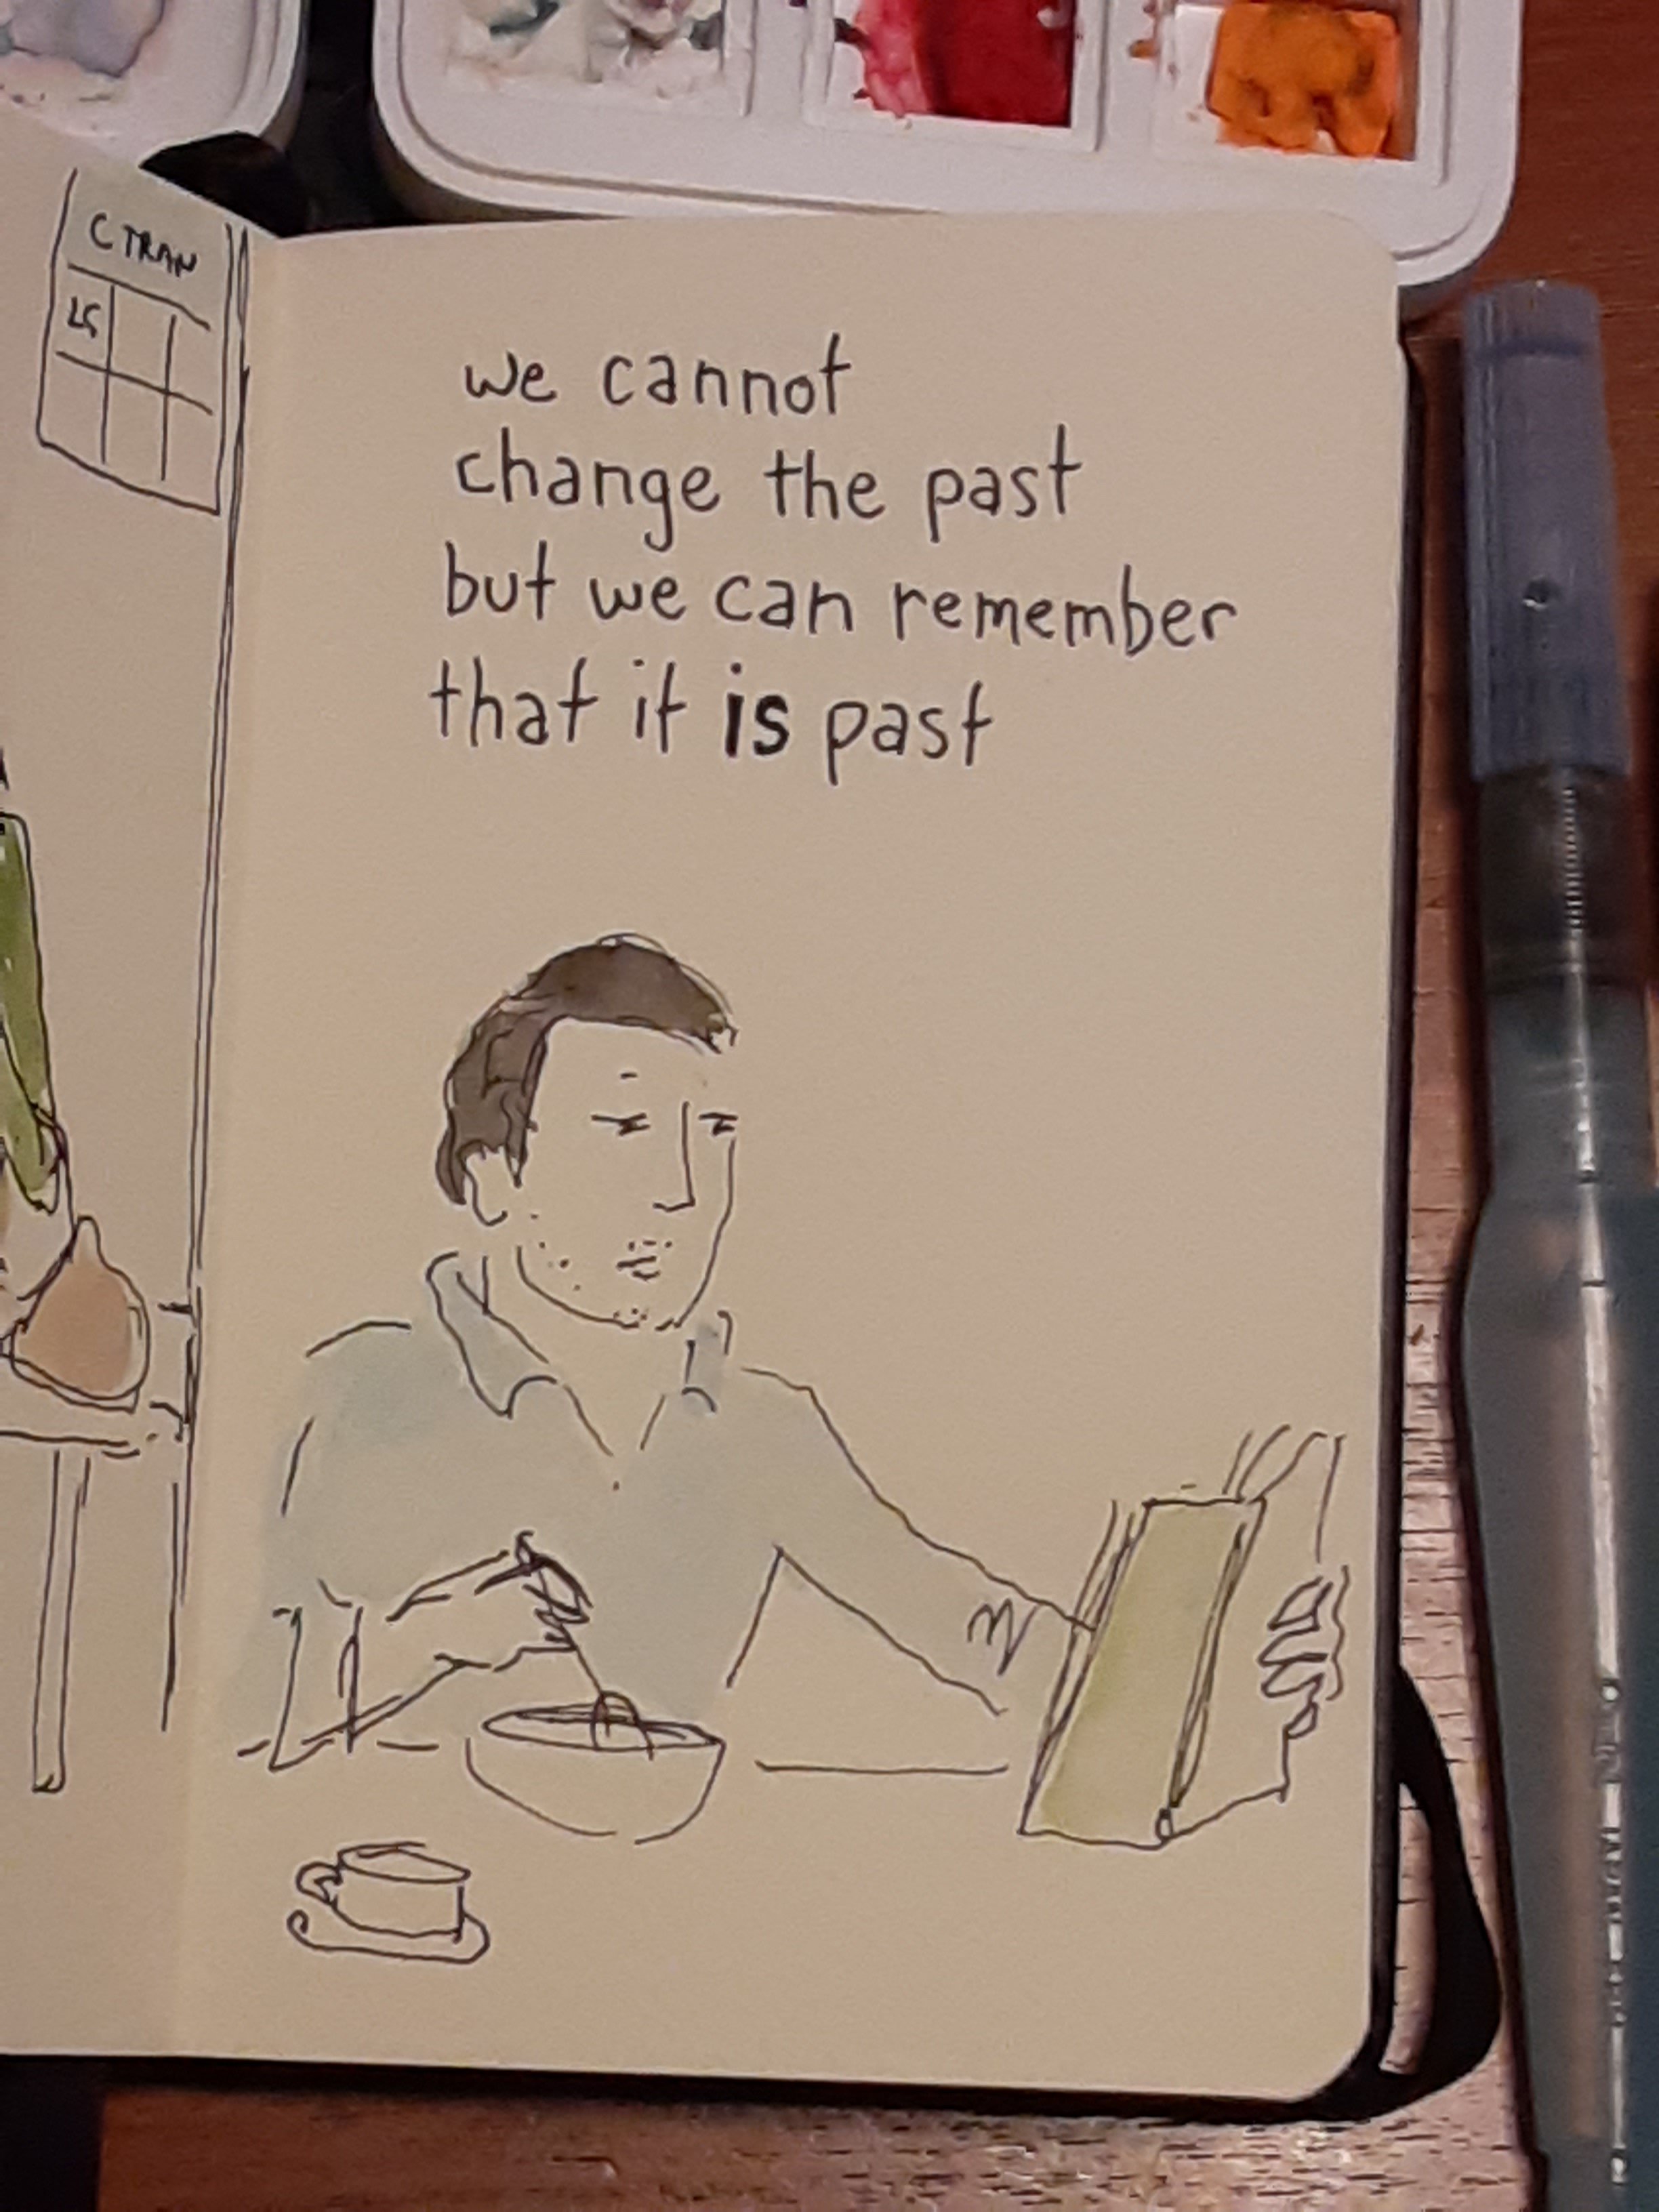 C TRAN
25
we cannot
change the past
but we can remember
that it is past